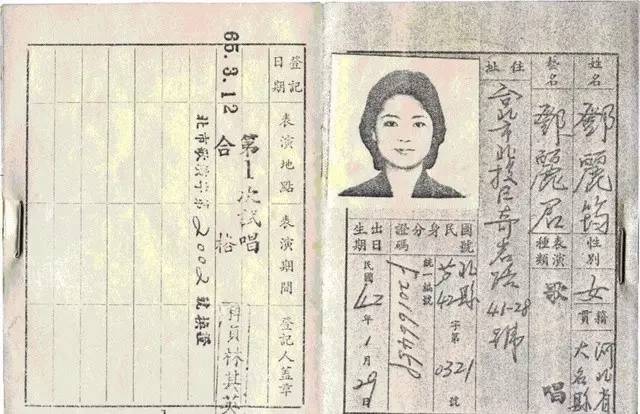 姓名 鄧麗筠 性別 女 籍貫 河北省大名縣
藝名 鄧麗君 表演種類 歌唱
住址 台北市北投區奇岩路41-28號
國民身分證號碼 北縣 42字第0321號
統一編號
出生日期 民國42年1月29日
登記日期 表演地點 表演期間 登記人蓋章
65.3.12 第1次試唱
合格
北市 字第2002號換證
林其英